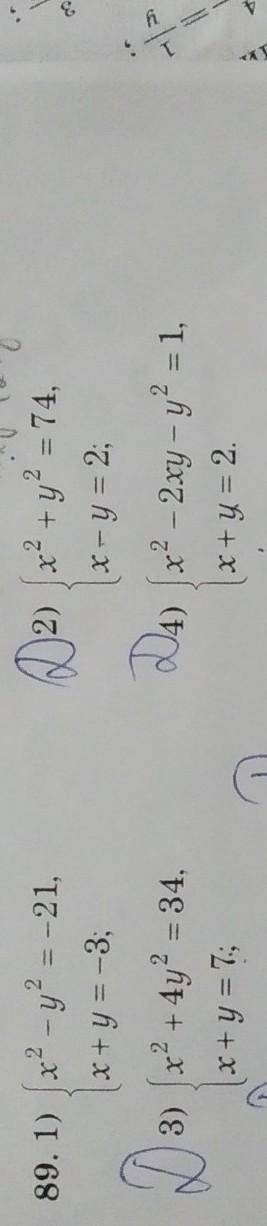 89. 1) { x² − y² = −21,
x + y = −3;
2) { x² + y² = 74,
x − y = 2;
3) { x² + 4y² = 34,
x + y = 7;
4) { x² − 2xy − y² = 1,
x + y = 2.